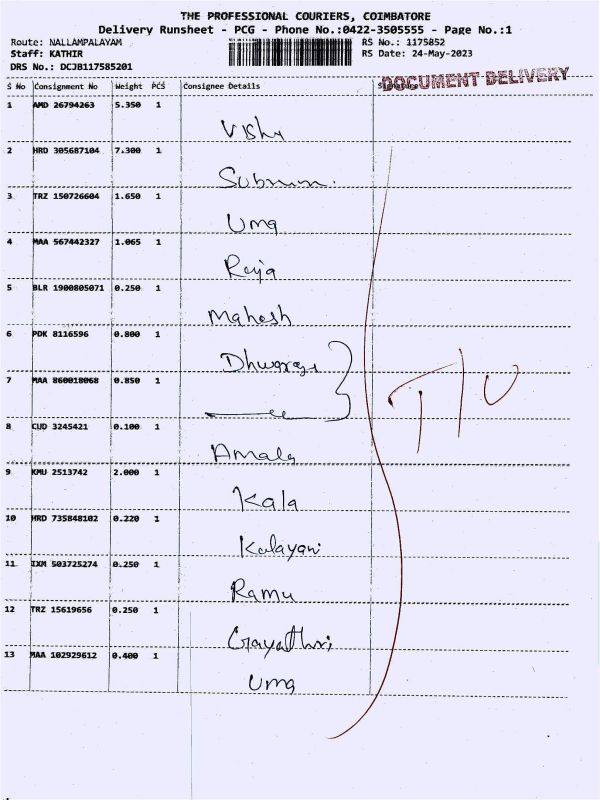 THE PROFESSIONAL COURIERS, COIMBATORE
Delivery Runsheet - PCG - Phone No.:0422-3505555 - Page No.:1
Route: NALLAMPALAYAM RS No.: 1175852
Staff: KATHIR RS Date: 24-May-2023
DRS No.: DCJB117585201
DOCUMENT DELIVERY
S No Consignment No Weight PCS Consignee Details Signature
1 AMD 26794263 5.350 1
Vishu
2 HRD 305687104 7.300 1
3 TRZ 150726604 1.650 1
Uma
4 MAA 567442327 1.065 1
Raja
5 BLR 1900805071 0.250 1
Mahesh
6 PDK 8116596 0.800 1
7 MAA 860018068 0.850 1
8 CUD 3245421 0.100 1
Amala
9 KMU 2513742 2.000 1
Kala
10 HRD 735848102 0.220 1
Kalayani
11 IXM 503725274 0.250 1
Ramu
12 TRZ 15619656 0.250 1
Gayathri
13 MAA 102929612 0.400 1
Uma